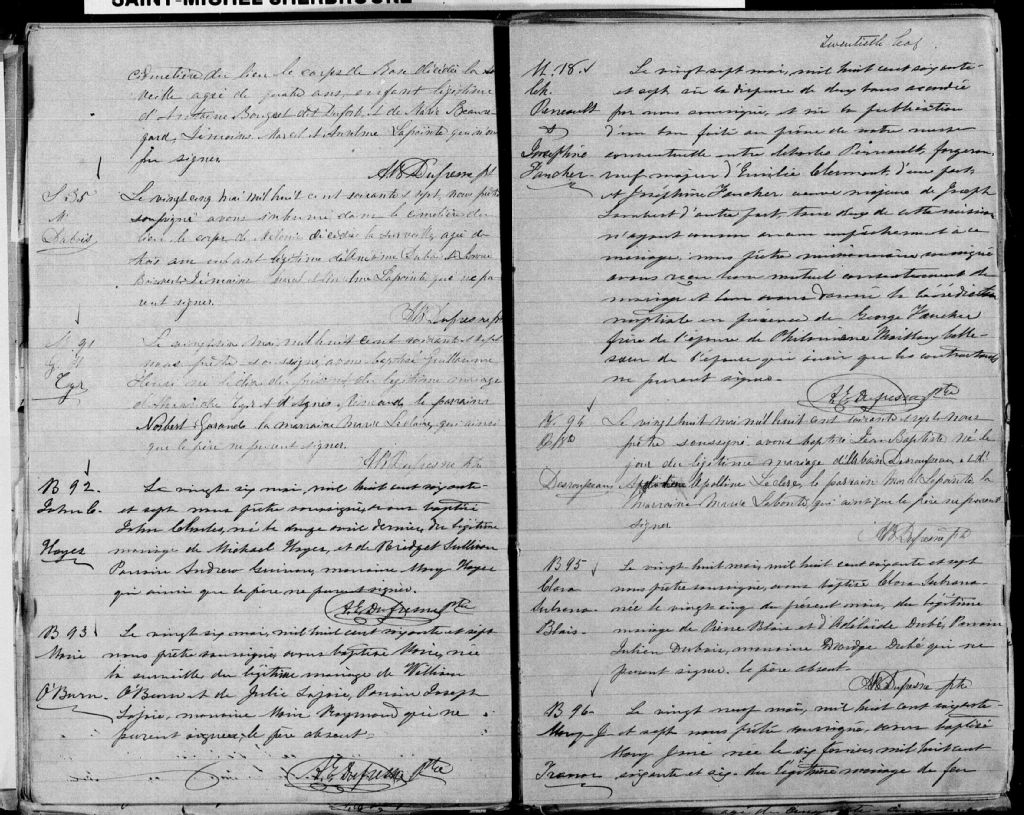 SAINT-MICHEL SHERBROOKE
cimetière du lieu le corps de Rose décédée la
veille agée de quatre ans, enfant légitime
d'Antoine Bousquet dit Dufort, et de Marie Beaure-
gard, Témoins, Marcel et Anselme Lapointe qui n'ont
pu signer
A E Dufresne ptr
S 35
N.
Dubois
Le vingt cinq mai mil huit cent soixante et sept, nous prêtre
soussigné avons inhumé dans le cimetière du
lieu le corps de décédé la surveille, agé de
trois ans enfant légitime d'Antoine Dubois et
Témoins Marcel et Anselme Lapointe qui ne pu-
rent signer.
A E Dufresne ptr
N 91
G. H
Cyr
Le vingt six mai mil huit cent soixante et sept
nous prêtre soussigné avons baptisé Guillaume
Henri né du légitime mariage
d'Alexandre Cyr et d'Agnes le parrain
Norbert la marraine Marie Leclaire, qui ainsi
que le père ne purent signer.
A E Dufresne ptr
B 92
John C.
Hayes
Le vingt six mai, mil huit cent soixante
et sept nous prêtre soussigné, avons baptisé
John Charles, né le douze avril dernier, du légitime
mariage de Michael Hayes, et de Bridget Sullivan
Parrain Andrew marraine Mary Hayes
qui ainsi que le père ne purent signer.
A.E. Dufresne Ptre
B 93
Marie
O'Burn
Le vingt six mai, mil huit cent soixante et sept
nous prêtre soussigné avons baptisé Marie, née
la surveille du légitime mariage de William
O'Burn et de Julie Parrain Joseph
marraine Marie Raymond qui ne
purent signer, le père absent.
A.E Dufresne Ptre
Twentieth leaf.
M. 18
Ch.
Perreault
&
Josephine
Faucher
Le vingt sept mai, mil huit cent soixante-
et sept vu la dispense de deux bans accordée
par nous soussigné, et vu la publication
d'un ban faite au prône de notre messe
conventuelle entre Charles Perreault, forgeron,
veuf majeur d'Emilie Clermont d'une part
et Joséphine Faucher veuve majeure de Joseph
Lambert d'autre part, tous deux de cette mission
n'ayant connu aucun empêchement à ce
mariage, nous prêtre missionnaire soussigné
avons reçu leur mutuel consentement de
mariage et leur avons donné la bénédiction
nuptiale en présence de George Faucher
frère de l'épouse de Philomène belle-
soeur de l'épouse qui ainsi que les contractants
ne purent signer.
A.E. Dufresne Ptre
B. 94
J. Bte
Desrousseau
Le vingt huit mai mil huit cent soixante et sept nous
prêtre soussigné avons baptisé Jean Baptiste né le
jour du légitime mariage d'Urbain Desrousseau et d'
Apolline Leclerc, le parrain Marcel Lapointe la
marraine Marie Labonté, qui ainsi que le père ne purent
signer
A E Dufresne ptr
B 95
Clara
Blais
Le vingt huit mai, mil huit cent soixante et sept
nous prêtre soussigné, avons baptisé Clara
née le vingt cinq du présent mois, du légitime
mariage de Pierre Blais et d'Adélaïde Dubé, Parrain
Julien Dubois, marraine Dubé qui ne
purent signer. le père absent.
A E Dufresne ptr
B 96
Mary J
Le vingt neuf mai, mil huit cent soixante-
et sept nous prêtre soussigné, avons baptisé
Mary Jane née le six février, mil huit cent
soixante et six du légitime mariage de feu